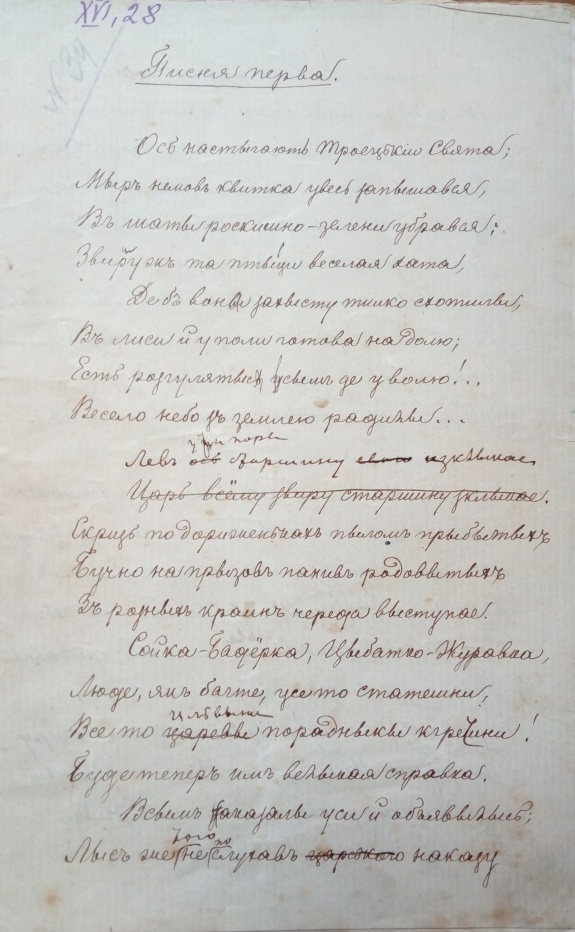 XVI, 28
№ 34
Писня перва.
Ось настыгають Троецькiи Свята;
Мыръ немовъ квитка увесь запышався,
Въ шаты роскишно-зелени убрався;
Звирукъ та птыци веселая хата,
Де бъ воны захисту тилько схотилы,
Въ лиси й у поли готова на долю;
Есть розгулятысь усьимъ де у волю!..
Весело небо зъ землею радилы...
зъ тіи поры
Левъ ось старшину свою изклыкае,
Царь всёму звиру старшину склыкае.
Скризь по дориженькахъ пыломъ прыбытыхъ
Бучно на прызовъ панивъ родовытыхъ
Зъ родныхъ краинъ череда выступае.
Сойка-Бадёрка, Цыбатко-Журавка,
Люде, якъ бачте, усе то статешни,
Все то царевы порадныкы кгречни!
Буде теперъ имъ велыкая справка.
Всьимъ наказалы уси й объявылысь;
Лысъ же не слухавъ царского наказу
його по